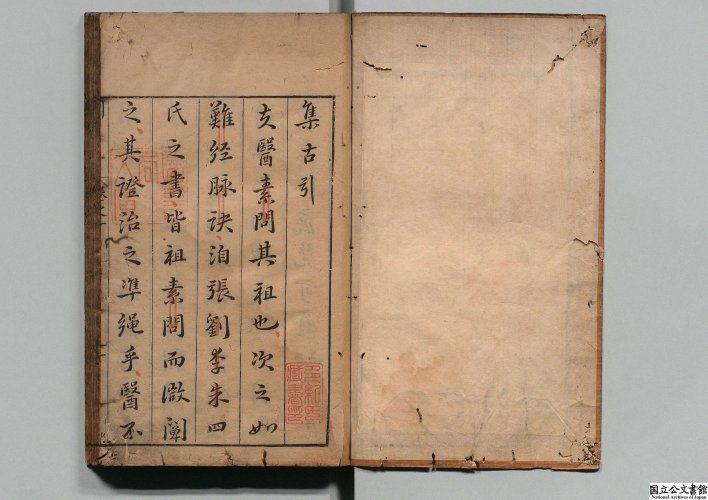 集古引
夫醫素問其祖也次之如
難経脉訣洎張劉李朱四
氏之書皆祖素問而敷闡
之其證治之準繩乎醫不
多紀氏藏書印
国立公文書館
National Archives of Japan